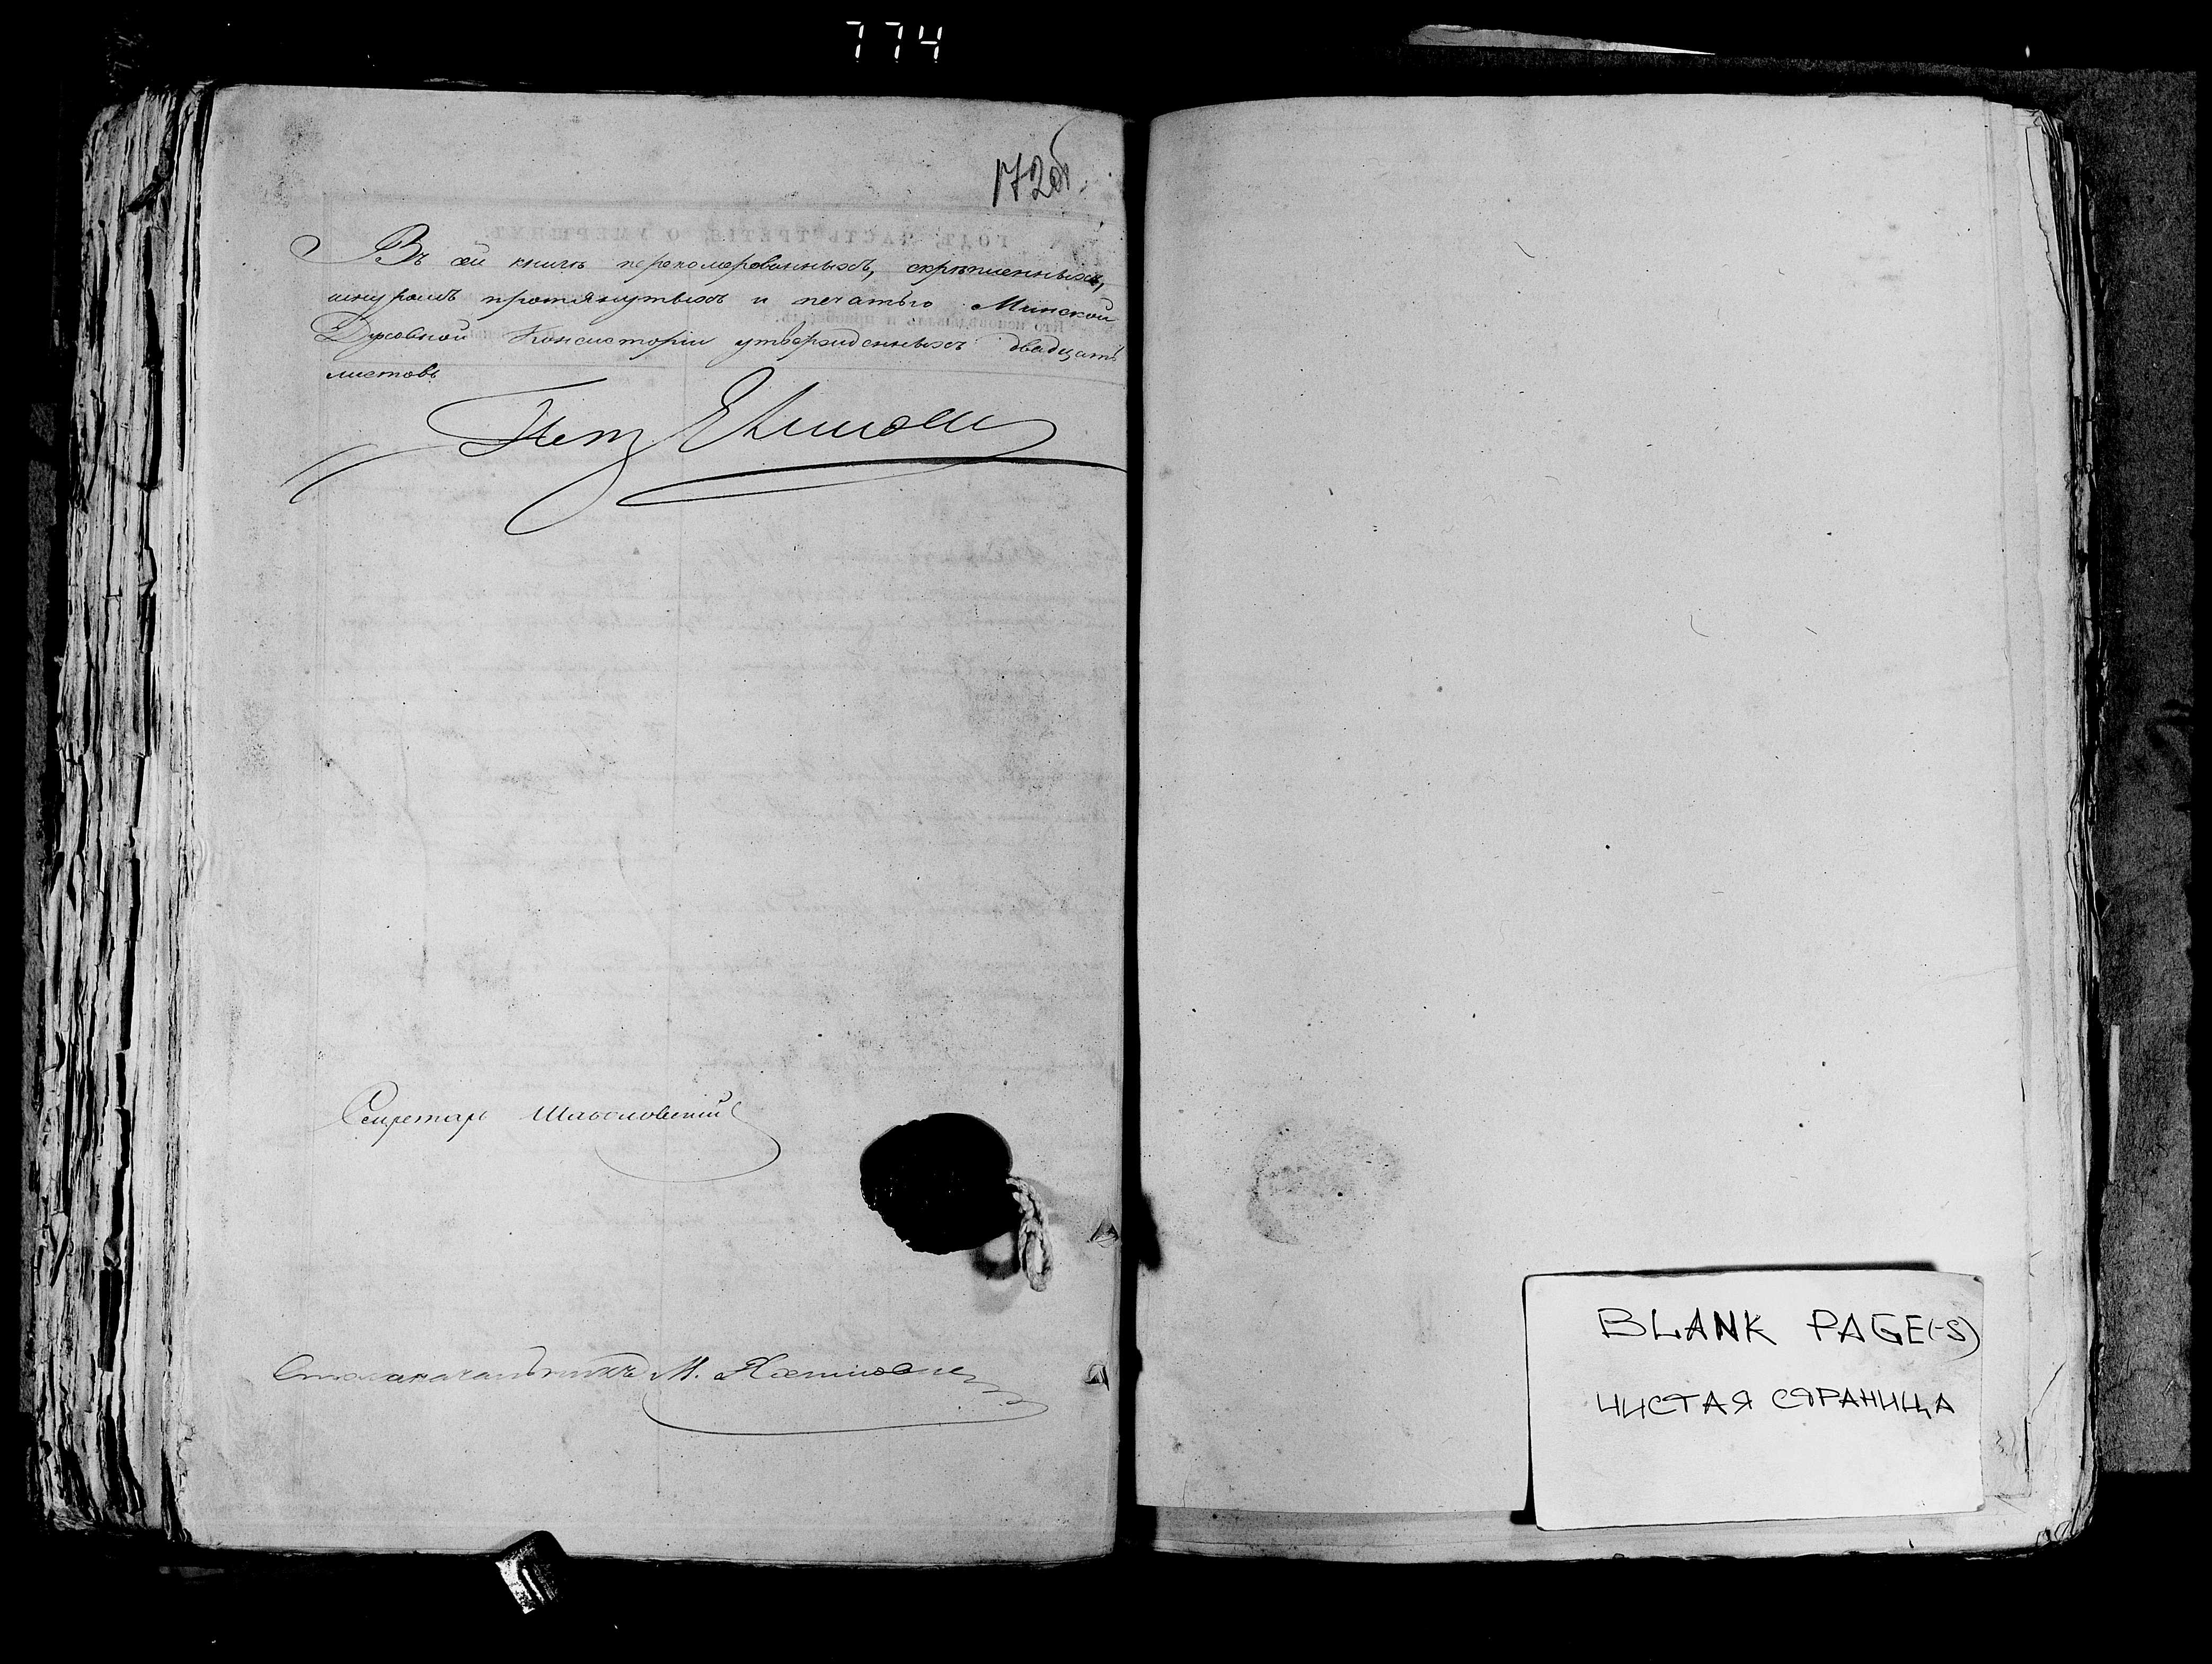 774
172об.
Въ сей книгѣ перенумерованныхъ, скрѣпленныхъ,
шнуромъ протянутыхъ и печатью Минской
Духовной Консисторіи утвержденныхъ двадцать
листовъ
Секретарь
Столоначальникъ М.
BLANK PAGE(-S)
ЧИСТАЯ СТРАНИЦА